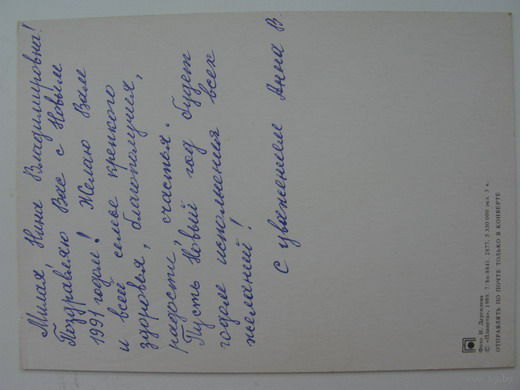 Милая Нина Владимировна!
Поздравляю Вас с Новым
1991 годом! Желаю Вам
и всей семье крепкого
здоровья, благополучия,
радости, счастья.
Пусть Новый год будет
годом исполнения всех
желаний!
С уважением Анна В.
Фото И. Дергилева
© «Планета», 1989. 7/8а-8841. 2877. 3 350 000 экз. 3 к.
ОТПРАВЛЯТЬ ПО ПОЧТЕ ТОЛЬКО В КОНВЕРТЕ